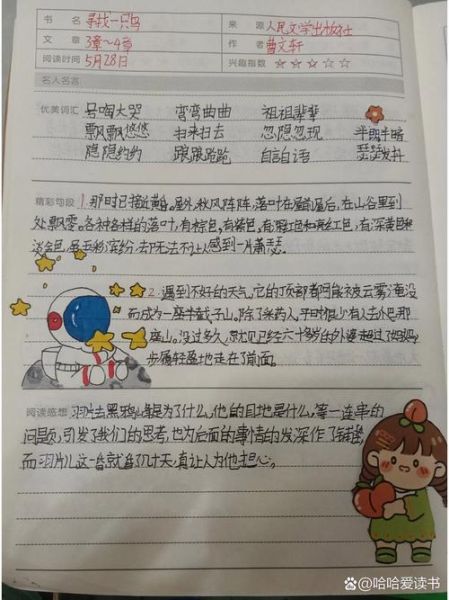 书 名 寻找一只鸟 来 源 人民文学出版社
文 章 3章~4章 作 者 曹文轩
阅读时间 5月28日 兴趣指数 ☆☆☆☆☆
名人名言
优美词汇 号啕大哭 弯弯曲曲 祖祖辈辈
飘飘悠悠 扫来扫去 忽隐忽现 半明半暗
隐隐约约 踉踉跄跄 自言自语 瑟瑟发抖
精彩句段 1.那时已接近黄昏。屋外,秋风阵阵,落叶在屋前屋后,在山谷里到
处飘零。各种各样的落叶,有棕色,有紫色,有粉红色和亮红色,有深黄色和
淡金色,虽五彩缤纷,却无法不让人感到一片萧瑟。
2.遇到不好的天气,它的顶部都可能被云雾淹没
而成为一座半截子山。除了采药人,平时很少有人去外巴那
座山。没过多久,就见已经六十多岁的外婆超过了妈妈,
步履轻盈地走在了前面。
阅读感想 羽片去黑鸦峰是为了什么,他的目地是什么,等一连串的
问题,引发了我们的思考,也为后面的事情的发深作了铺垫,
而羽片儿这一音就音了几十天,真让人为他担心。
哈哈爱读书